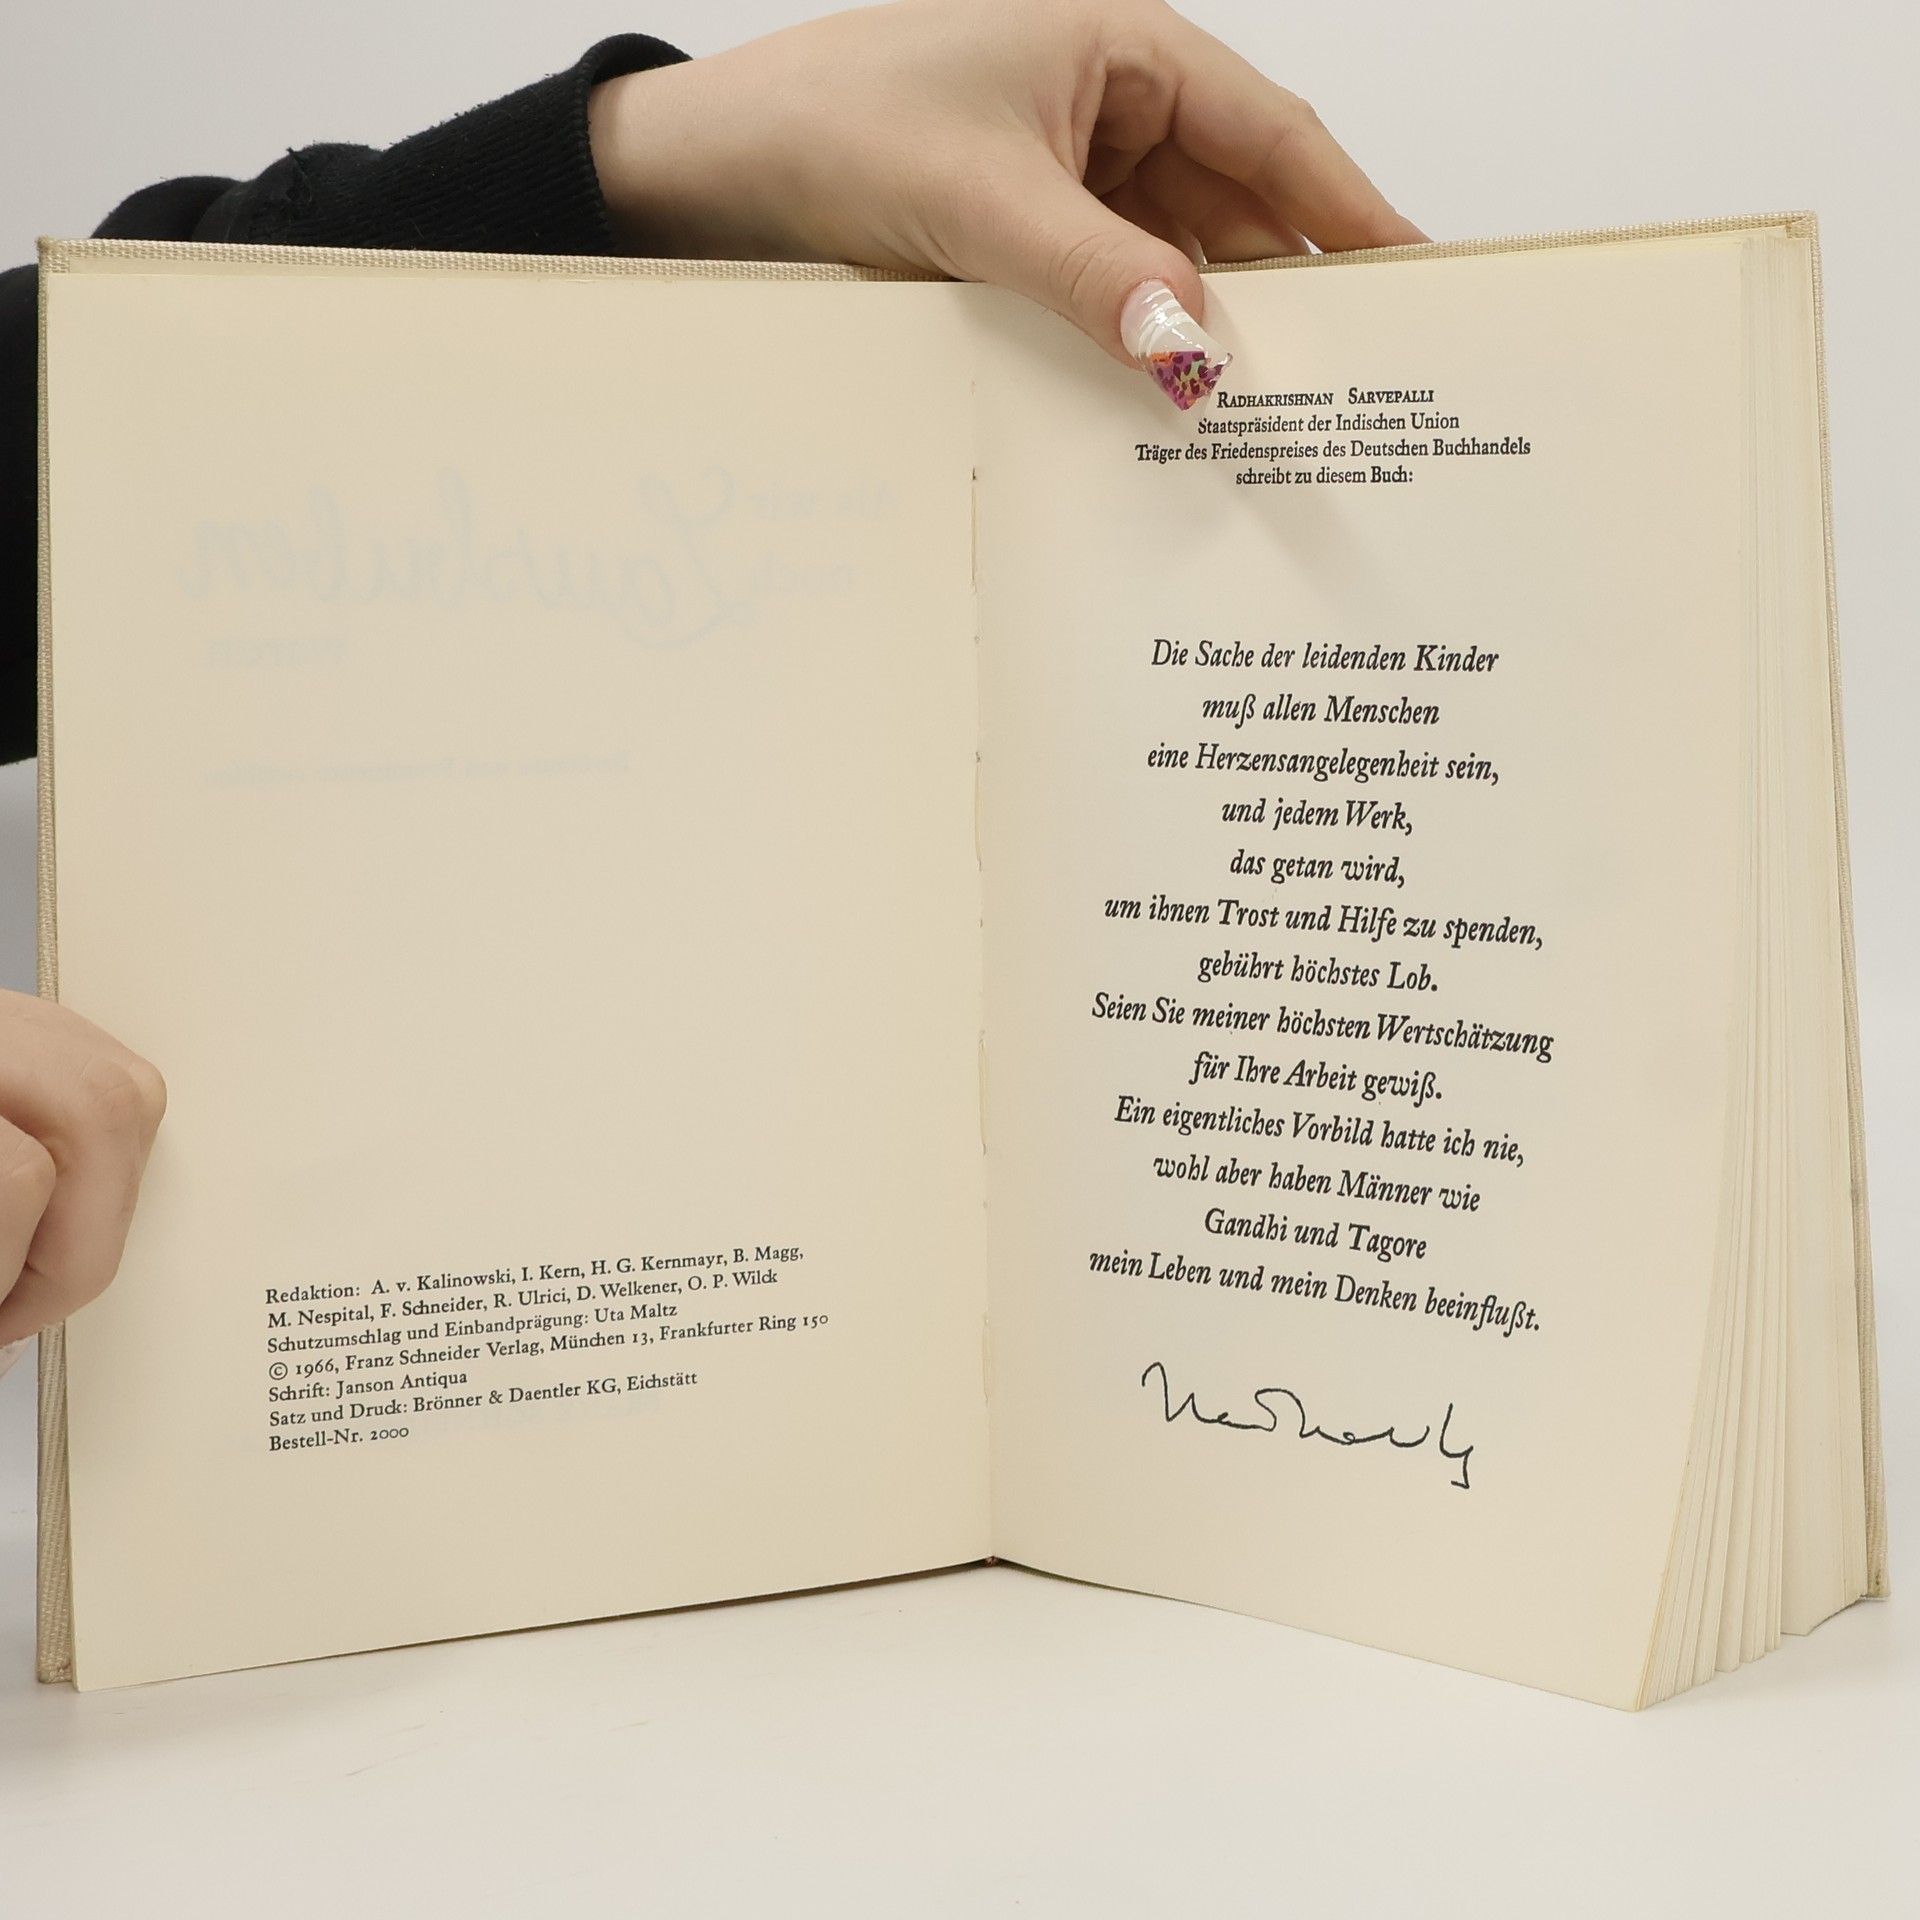 Redaktion: A. v. Kalinowski, I. Kern, H. G. Kernmayr, B. Magg,
M. Nespital, F. Schneider, R. Ulrici, D. Welkener, O. P. Wilck
Schutzumschlag und Einbandprägung: Uta Maltz
© 1966, Franz Schneider Verlag, München 13, Frankfurter Ring 150
Schrift: Janson Antiqua
Satz und Druck: Brönner & Daentler KG, Eichstätt
Bestell-Nr. 2000
RADHAKRISHNAN SARVEPALLI
Staatspräsident der Indischen Union
Träger des Friedenspreises des Deutschen Buchhandels
schreibt zu diesem Buch:
Die Sache der leidenden Kinder
muß allen Menschen
eine Herzensangelegenheit sein,
und jedem Werk,
das getan wird,
um ihnen Trost und Hilfe zu spenden,
gebührt höchstes Lob.
Seien Sie meiner höchsten Wertschätzung
für Ihre Arbeit gewiß.
Ein eigentliches Vorbild hatte ich nie,
wohl aber haben Männer wie
Gandhi und Tagore
mein Leben und mein Denken beeinflußt.